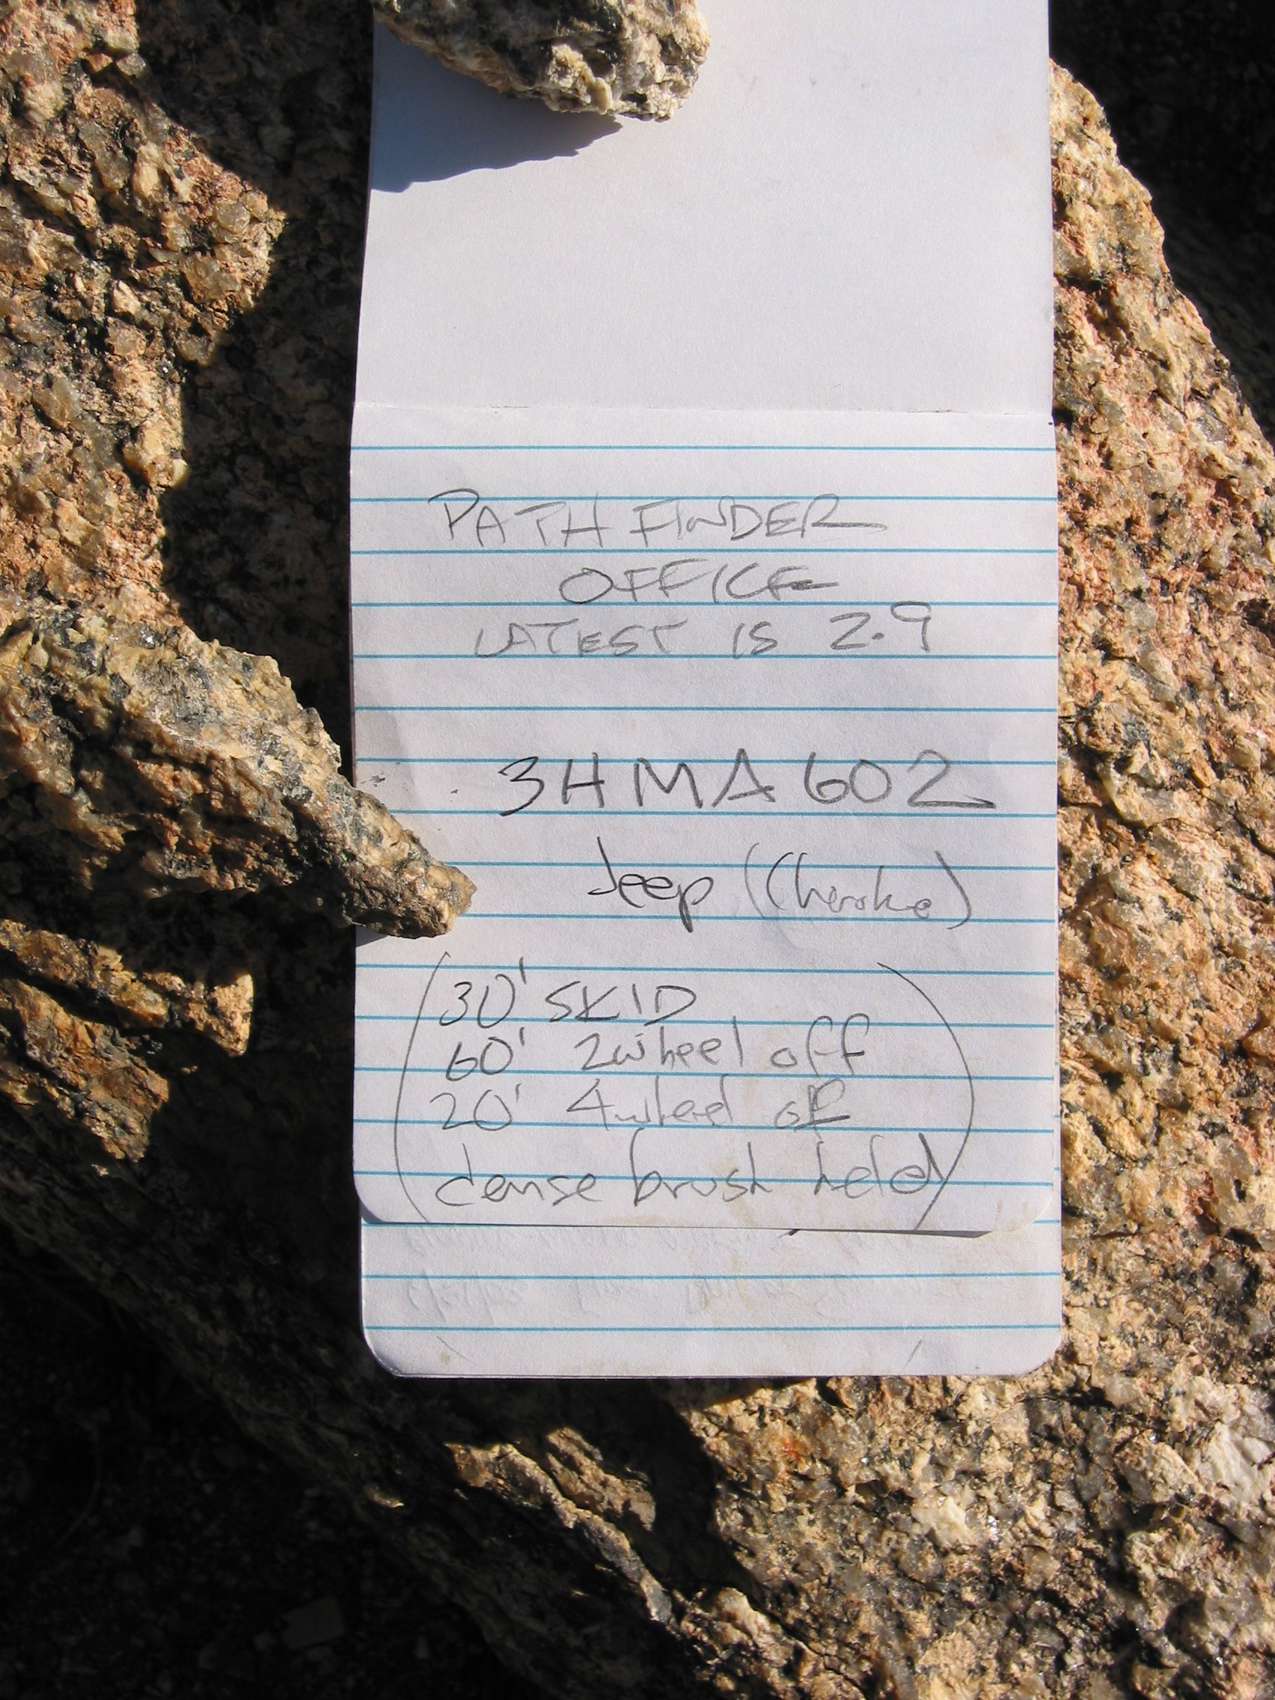 PATHFINDER
OFFICE
LATEST IS 2.9
3HMA602
Jeep (Cherokee)
(30' SKID
60' 2wheel off
20' 4wheel off
dense brush held)